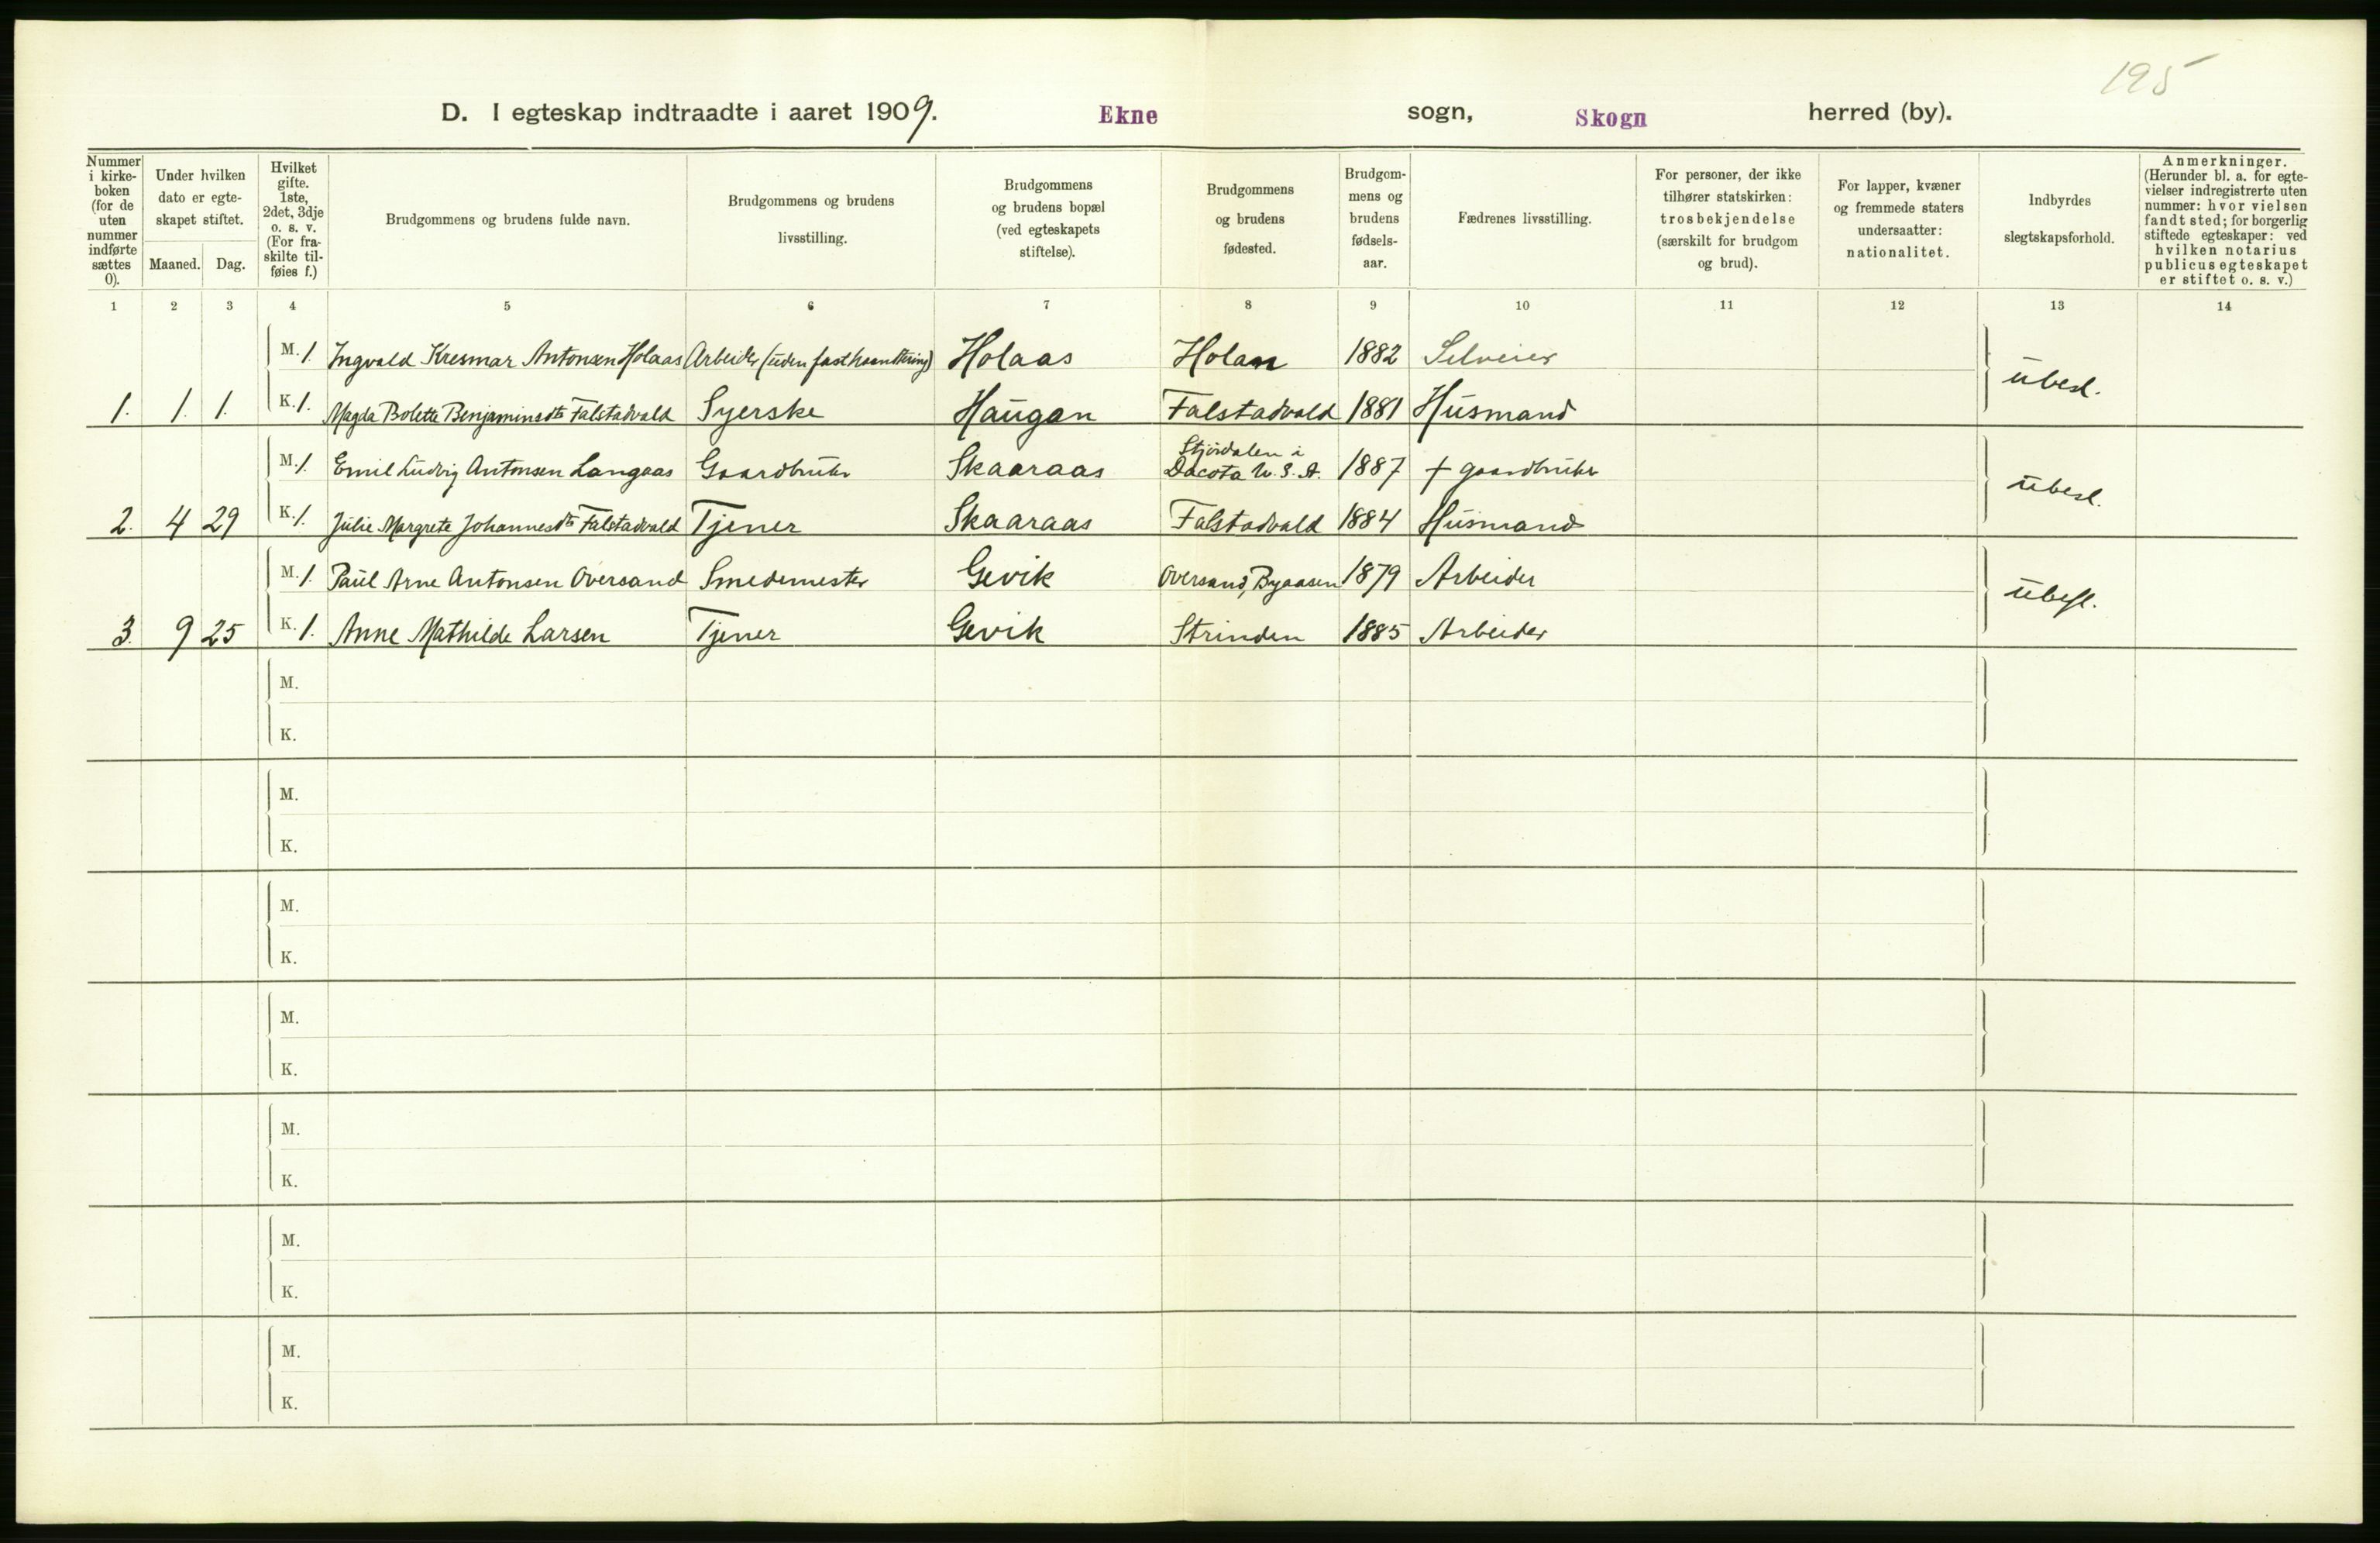 195
D. I egteskap indtraadte i aaret 1909. Ekne sogn, Skogn herred (by).
Nummer i kirke-boken (for de uten nummer indførte sættes 0).
Under hvilken dato er egte-skapet stiftet.
Maaned. Dag.
Hvilket gifte. 1ste, 2det, 3dje o. s. v. (For fra-skilte til-føies f.)
Brudgommens og brudens fulde navn.
Brudgommens og brudens livsstilling.
Brudgommens og brudens bopæl (ved egteskapets stiftelse).
Brudgommens og brudens fødested.
Brudgom-mens og brudens fødsels-aar.
Fædrenes livsstilling.
For personer, der ikke tilhører statskirken: trosbekjendelse (særskilt for brudgom og brud).
For lapper, kvæner og fremmede staters undersaatter: nationalitet.
Indbyrdes slegtskapsforhold.
Anmerkninger. (Herunder bl. a. for egte-vielser indregistrerte uten nummer: hvor vielsen fandt sted; for borgerlig stiftede egteskaper: ved hvilken notarius publicus egteskapet er stiftet o. s. v.)
1 2 3 4 5 6 7 8 9 10 11 12 13 14
M. 1. Ingvald Kresmar Antonsen Holaas Arbeider (uden fast haandtering) Holaas Holan 1882 Selveier
ubesl.
1. 1. 1. K. 1. Magda Bolette Benjaminsdt Falstadvald Syerske Haugan Falstadvald 1881 Husmand
M. 1. Emil Ludvig Antonsen Langaas Gaardbruker Skaaraas Stjørdalen i Dacota U. S. A. 1887 † gaardbruker
ubesl.
2. 4 29 K. 1. Julie Margrete Johannesdt Falstadvald Tjener Skaaraas Falstadvald 1884 Husmand
M. 1. Paul Arne Antonsen Oversand Smedemester Gevik Oversand, Byaasen 1879 Arbeider
ubesl.
3. 9 25 K. 1. Anne Mathilde Larsen Tjener Gevik Strinden 1885 Arbeider
M.
K.
M.
K.
M.
K.
M.
K.
M.
K.
M.
K.
M.
K.